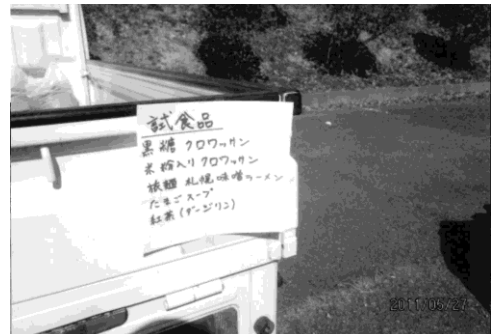 試食品
黒糖 クロワッサン
米粉入りクロワッサン
札幌味噌ラーメン
たまごスープ
紅茶(ダージリン)
2011/05/27